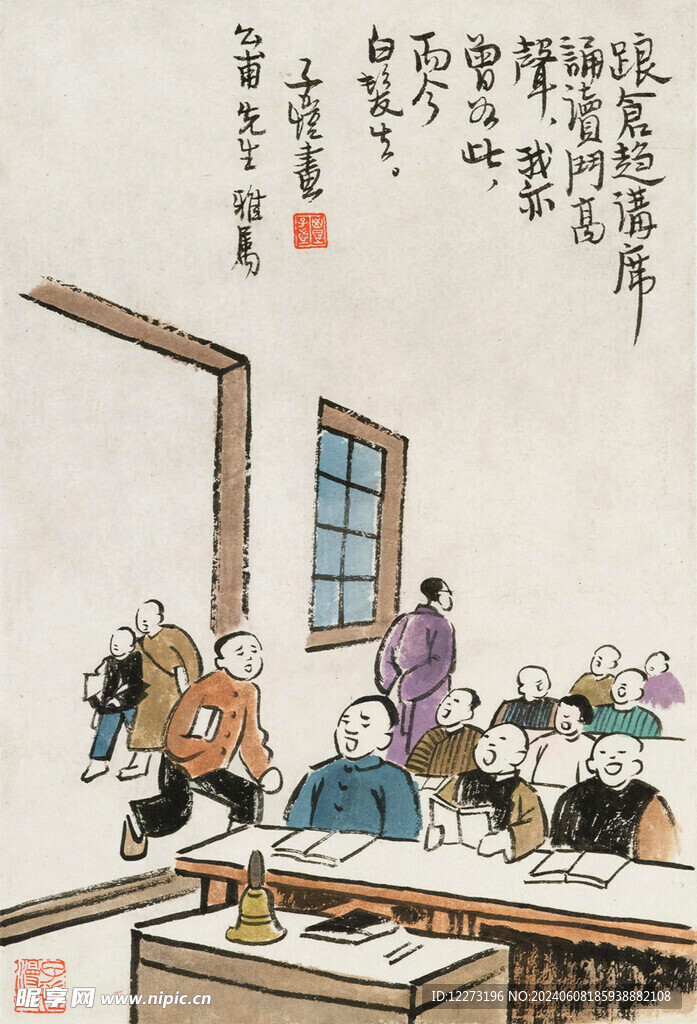 踉倉趋講席
誦讀鬥高
聲，我亦
曾如此，
而今
白髮生。
子愷畫
公甫先生雅属
昵享网 www.nipic.cn
ID:12273196 NO:20240608185938882108